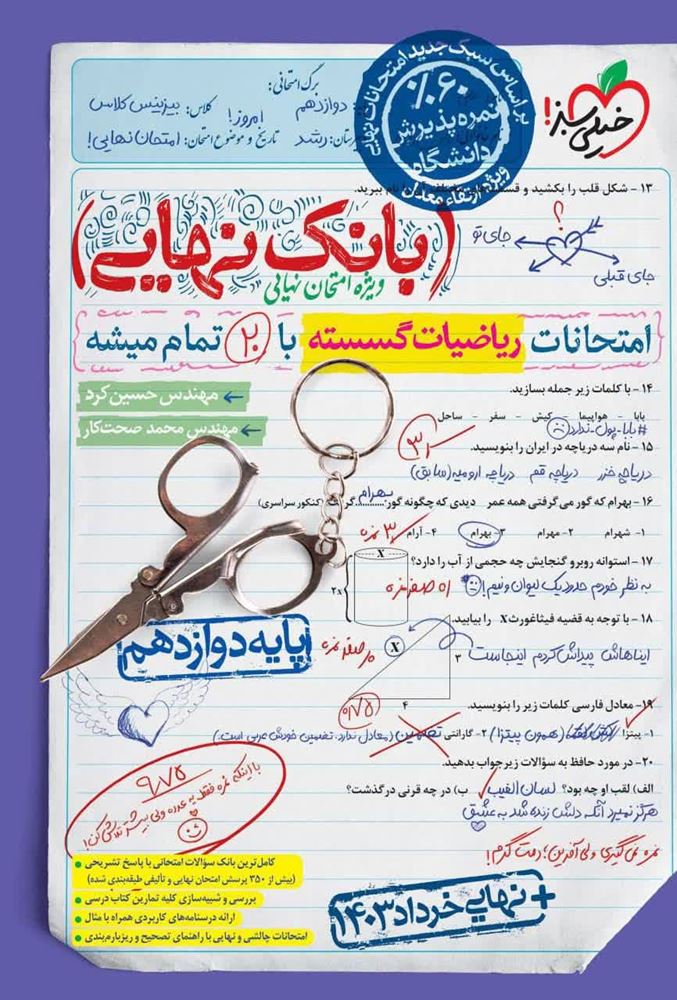 خیلی سبز!
بر اساس سبک جدید امتحانات نهایی
٪۶۰
نمره پذیرش
دانشگاه
ویژه ارتقاء معدل
برگ امتحانی:
دوازدهم
کلاس: بیزینس کلاس
امروز!
رشد
تاریخ و موضوع امتحان: امتحان نهایی!
۱۳ - شکل قلب را بکشید و
نام ببرید.
(بانک نهایی)
ویژه امتحان نهایی
؟
جای تو
جای قبلی
امتحانات ریاضیات گسسته با ۲۰ تمام میشه
← مهندس حسین کرد
← مهندس محمد صحت‌کار
۱۴ - با کلمات زیر جمله بسازید.
بابا - هواپیما - کیش - سفر - ساحل
#بابا-پول-ندارد
۱۵ - نام سه دریاچه در ایران را بنویسید.
دریاچه خزر دریاچه قم دریاچه ارومیه (سابق)
۱۶ - بهرام که گور می گرفتی همه عمر دیدی که چگونه گور ...بهرام... گرفت (کنکور سراسری)
۱- شهرام ۲- مهرام ۳- بهرام ۴- آرام
۳ نمره
۱۷ - استوانه روبرو گنجایش چه حجمی از آب را دارد؟
X
2x
به نظر خودم حدود یک لیوان و نیم!
۱۸ - با توجه به قضیه فیثاغورث X را بیابید.
X
۳
۴
ایناهاش پیداش کردم اینجاست
پایه دوازدهم
۱۹- معادل فارسی کلمات زیر را بنویسید.
۰/۷۵
۱- پیتزا (همون پیتزا) ۲- گارانتی تضمین (معادل ندارد، تضمین خودش عربی است.)
۲۰- در مورد حافظ به سؤالات زیر جواب بدهید.
الف) لقب او چه بود؟ لسان الغیب ب) در چه قرنی درگذشت؟
هرگز نمیرد آنکه دلش زنده شد به عشق
نمره نمی‌گیری ولی آفرین؛ دمت گرم!
۹/۷۵
با اینکه نمره فقط یه عدده ولی بیشتر تلاش کن!
کامل‌ترین بانک سؤالات امتحانی با پاسخ تشریحی
(بیش از ۳۵۰ پرسش امتحان نهایی و تألیفی طبقه‌بندی شده)
بررسی و شبیه‌سازی کلیه تمارین کتاب درسی
ارائه درسنامه‌های کاربردی همراه با مثال
امتحانات چالشی و نهایی با راهنمای تصحیح و ریزبارم‌بندی
+ نهایی خرداد ۱۴۰۳